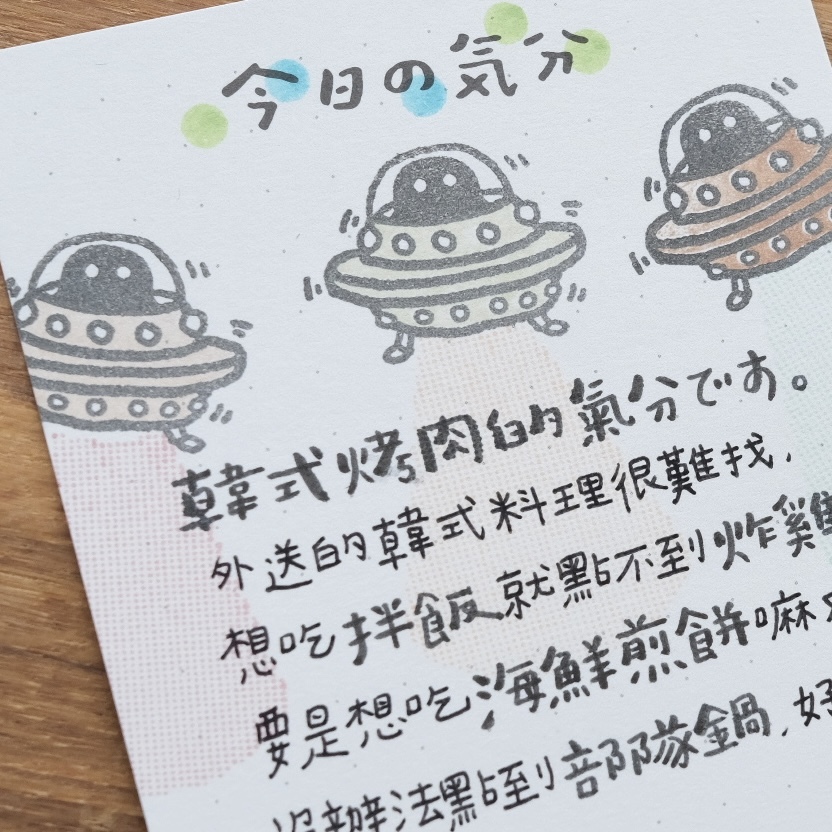 今日の気分
韓式烤肉的氣分です。
外送的韓式料理很難找,
想吃拌飯就點不到炸雞
要是想吃海鮮煎餅嘛
沒辦法點到部隊鍋,好